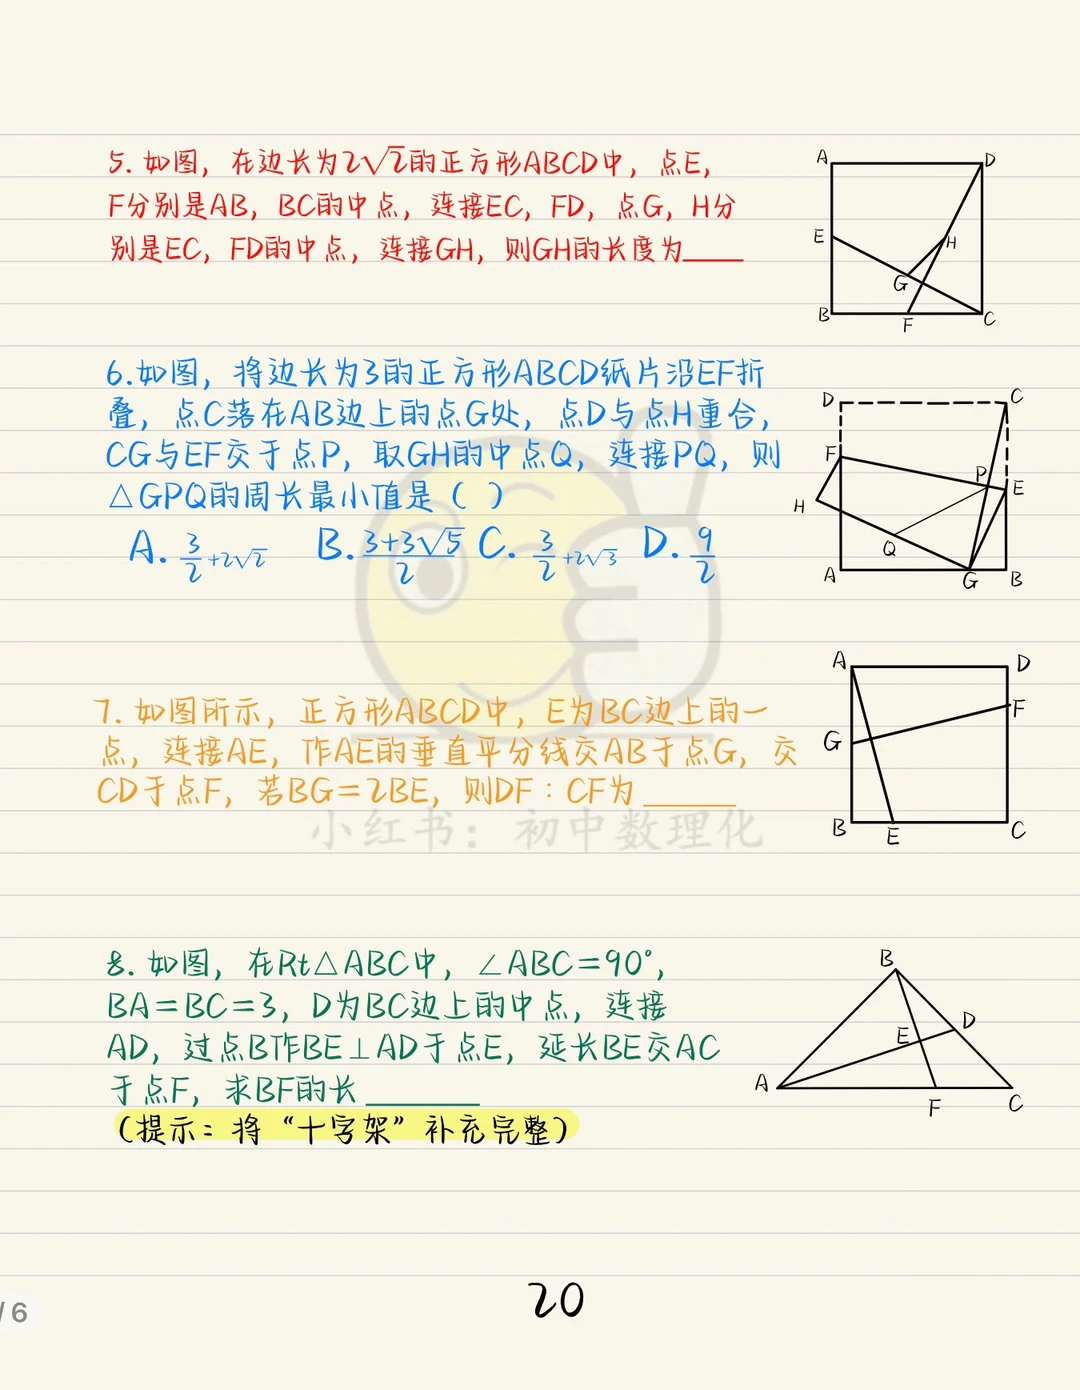 5. 如图，在边长为2√2的正方形ABCD中，点E，
F分别是AB，BC的中点，连接EC，FD，点G，H分
别是EC，FD的中点，连接GH，则GH的长度为____
A
D
E
H
G
B
F
C
6.如图，将边长为3的正方形ABCD纸片沿EF折
叠，点C落在AB边上的点G处，点D与点H重合，
CG与EF交于点P，取GH的中点Q，连接PQ，则
△GPQ的周长最小值是（ ）
A. 3/2+2√2 B. (3+3√5)/2 C. 3/2+2√3 D. 9/2
D
C
F
P
E
H
Q
A
G
B
7. 如图所示，正方形ABCD中，E为BC边上的一
点，连接AE，作AE的垂直平分线交AB于点G，交
CD于点F，若BG=2BE，则DF：CF为______
A
D
F
G
B
E
C
小红书：初中数理化
8. 如图，在Rt△ABC中，∠ABC=90°，
BA=BC=3，D为BC边上的中点，连接
AD，过点B作BE⊥AD于点E，延长BE交AC
于点F，求BF的长_______
（提示：将“十字架”补充完整）
B
D
E
A
F
C
20
/6